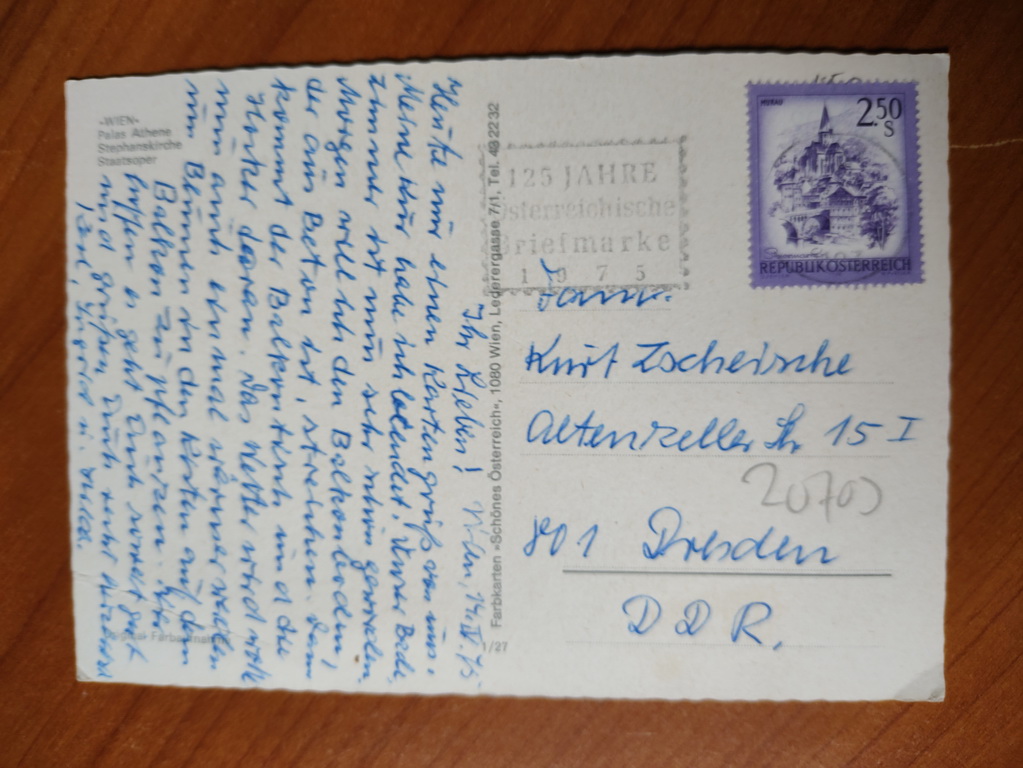 »WIEN«
Pallas Athene
Stephanskirche
Staatsoper
Wien, 14. IV. 75
Ihr Lieben!
Heute nur einen Kartengruß von uns.
Meine Kur habe ich beendet. Unser Bade
zimmer ist nun sehr schön geworden.
Morgen will ich den Balkonboden,
der aus Beton ist, streichen. Dann
kommt der Balkontisch und die
daran. Das Wetter wird wohl
nun auch einmal wärmer werden
um Blumen in den Kisten auf dem
Balkon zu pflanzen. Wir
hoffen es geht Euch soweit gut
und grüßen Euch sehr herzlich
Eure
Farbkarten »Schönes Österreich«, 1080 Wien, Lederergasse 7/1, Tel. 432232
1/27
125 JAHRE
österreichische
Briefmarke
1975
MURAU
2.50
S
REPUBLIK ÖSTERREICH
Fam.
Kurt Zscheische
Altenzeller Str 15 I
801 Dresden
DDR.
20703